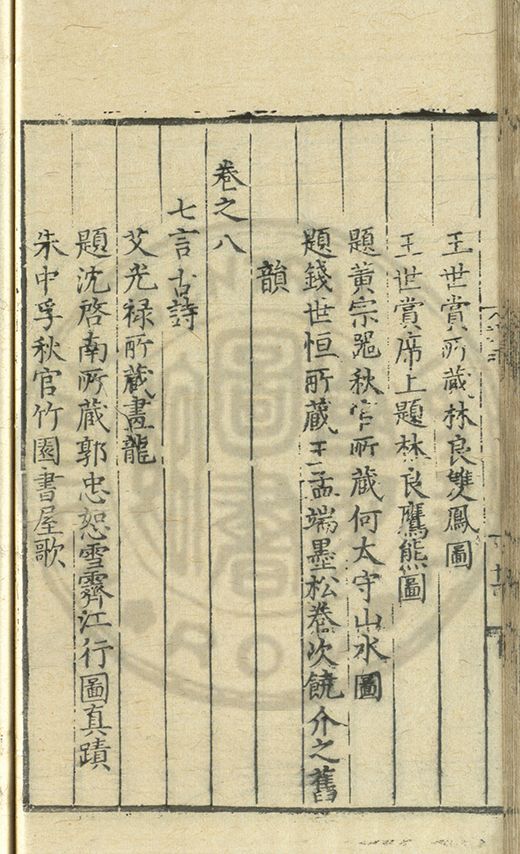 王世賞所藏林良雙鳳圖
王世賞席上題林良鷹熊圖
題黄宗器秋官所藏何太守山水圖
題錢世恒所藏王孟端墨松卷次饒介之舊
韻
卷之八
七言古詩
艾光禄所藏畫龍
題沈啓南所藏郭忠恕雪霽江行圖真蹟
朱中孚秋官竹園書屋歌